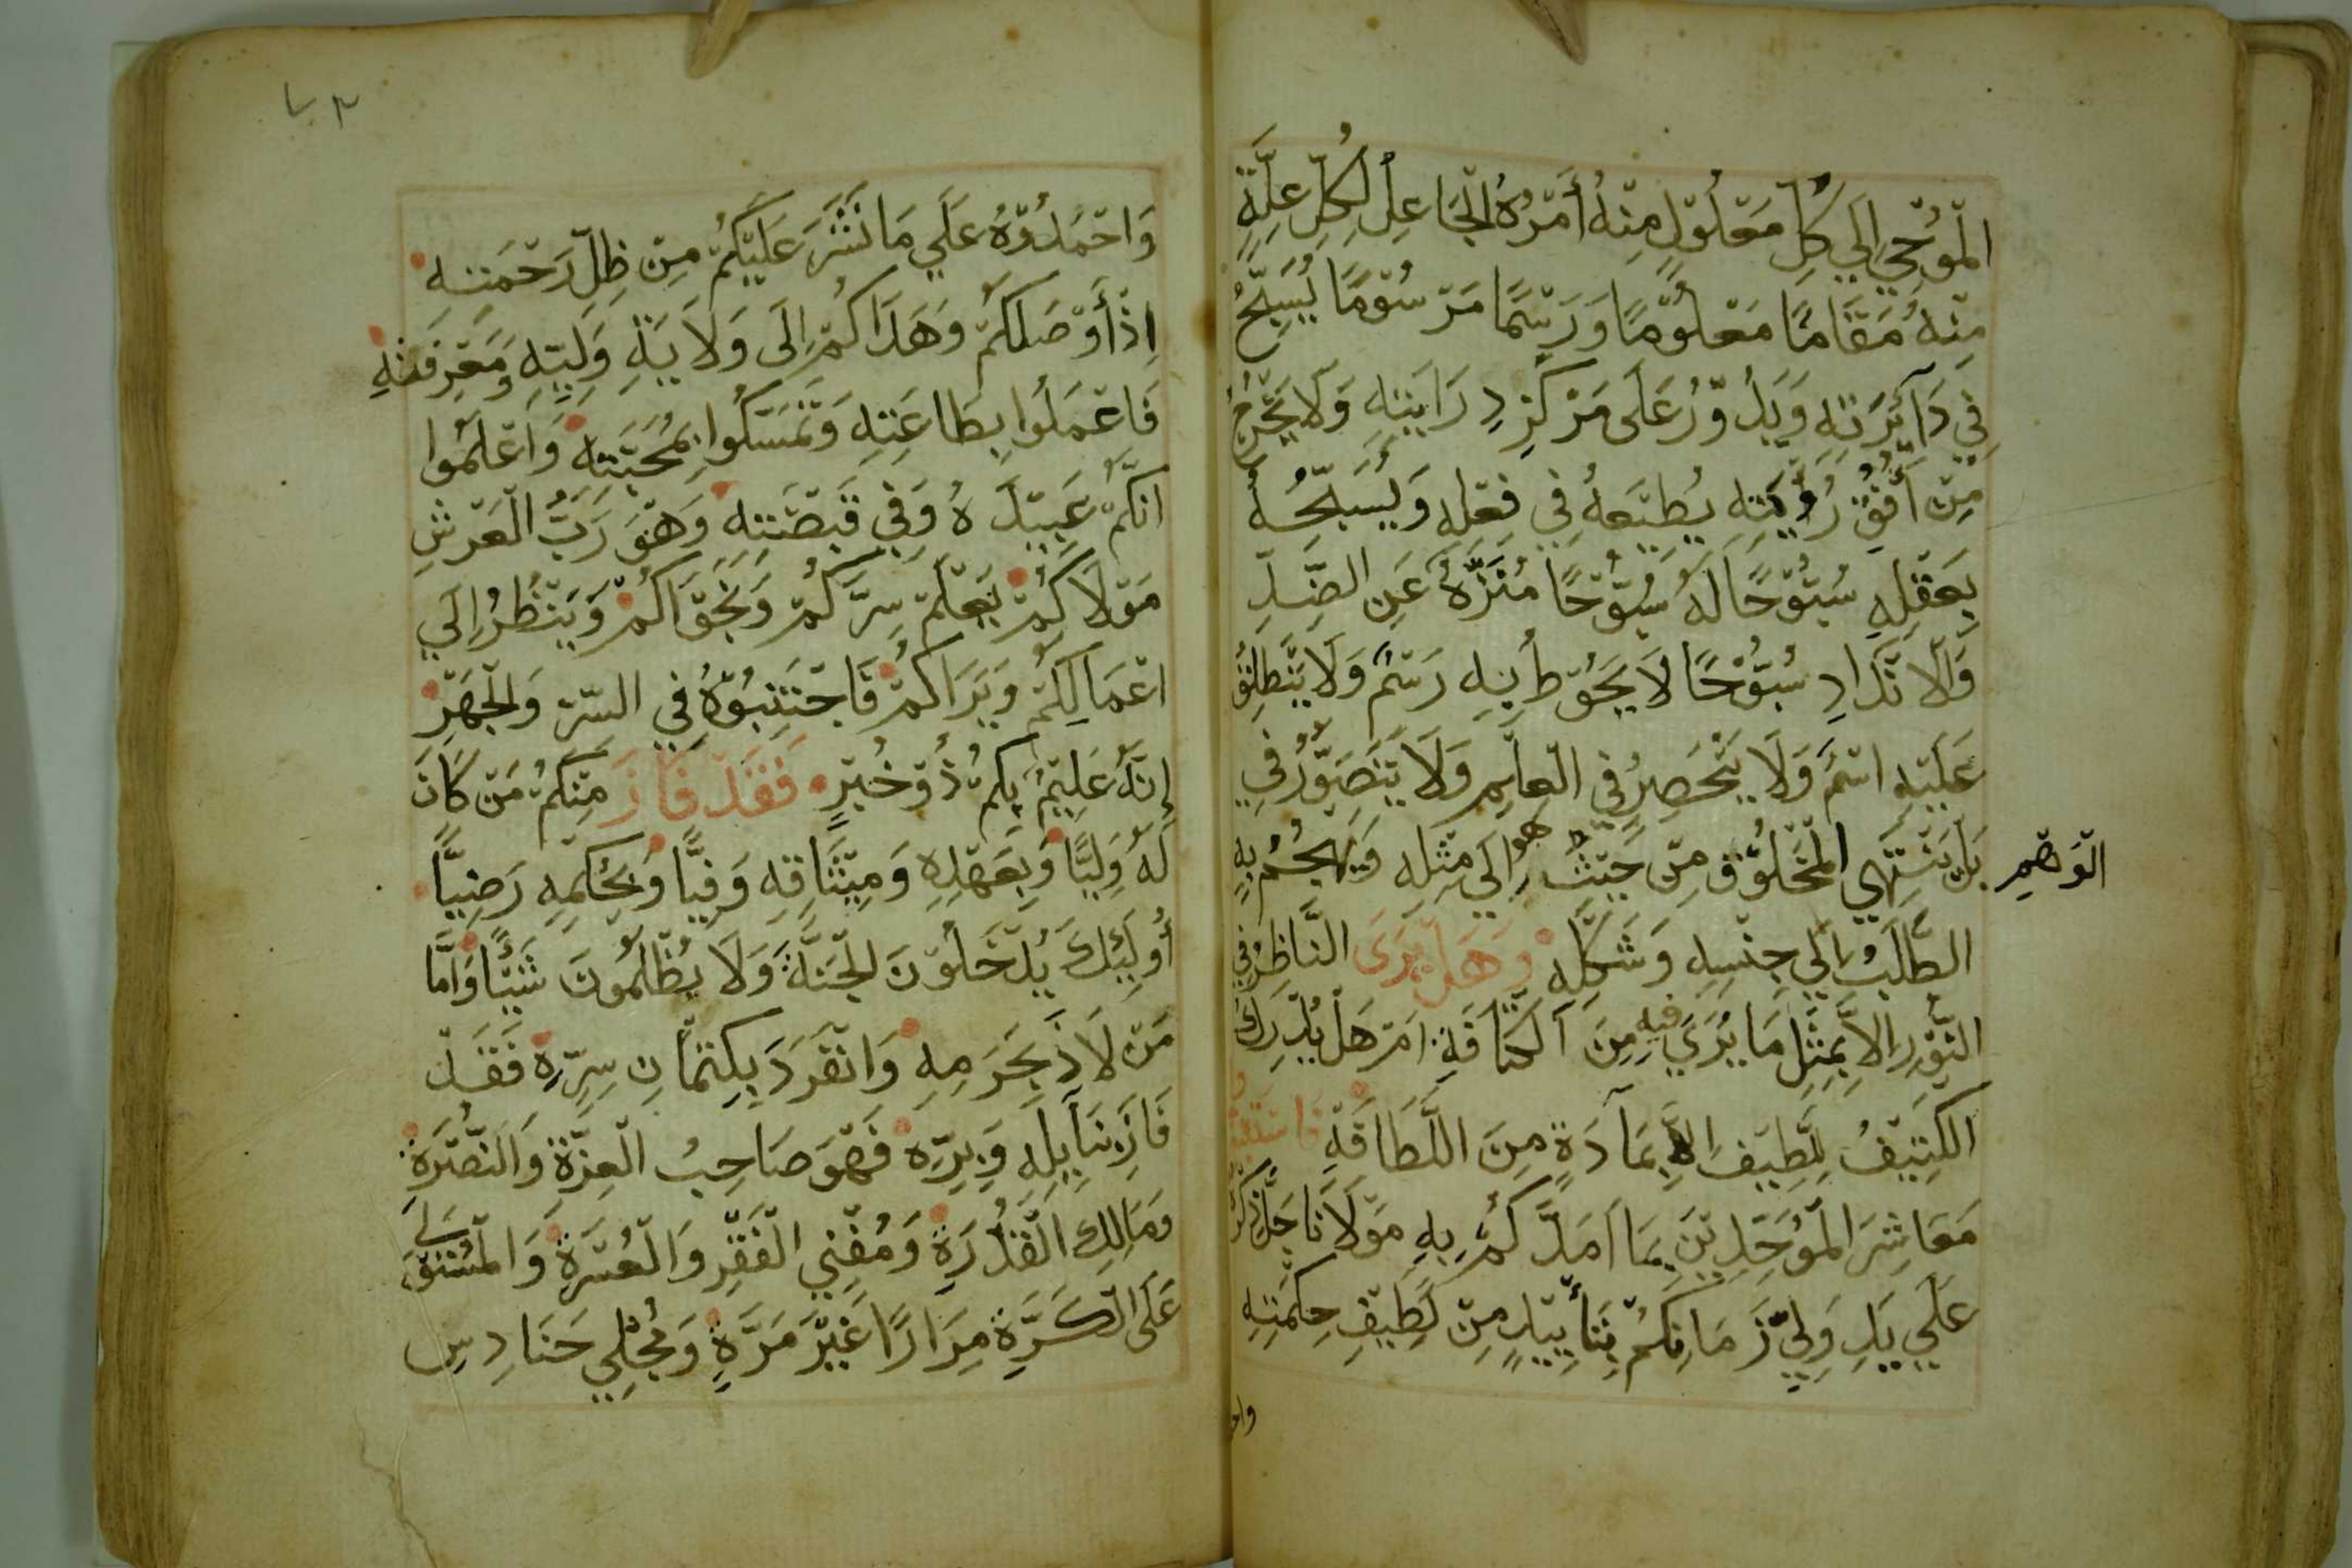 الْمُوْحِي اِلَي كُلِ مَعْلُوْلٍ مِنْهُ أَمْرُهُ الْجَاعِلِ لِكُلِ عِلَّةٍ
مِنْهُ مَقَامًا مَعْلُوْمًا وَرَسْمًا مَرْسُوْمًا يُسَبِّحُ
فِي دَآيِرَتِهِ وَيَدُوْرُ عَلَى مَرْكَزِ دِرَايَتِهِ وَلَا يَخْرُجُ
مِنْ أُفُقِ رُؤْيَتِهِ يُطِيْعَهُ فِي فِعْلِهِ وَيُسَبِّحُهُ
بِعَقْلِهِ سُبُوْحًا لَهُ سُبُوْحًا مُنَزَّهُ عَنِ الضِّدِ
وَالْاَنْدَادِ سُبُوْحًا لَا يَحُوْطُ بِهِ رَسْمٌ وَلَا يَنْطَلِقُ
عَلَيْهِ اسْمٌ وَلَا يَنْحَصِرُ فِي الْعِلْمِ وَلَا يَتَصَوَّرُ فِي
الْوَهْمِ
بَلْ يَنْتَهِي الْمَخْلُوْقُ مِنْ حَيْثُ هو اِلَي مِثْلِهِ وَيَهْجُمُ بِهِ
الطَّلَبُ اِلَي جِنْسِهِ وَشَكْلِهِ وَهَلْ يَرَى النَّاظِرُ فِي
النُّوْرِ اِلَّا بِمِثِلِ مَا يُرَي فيه مِنَ الْكَثَافَةِ اَمْ هَلْ يُدْرِكُ
الْكَثِيْفُ لِلَّطِيْفِ اِلَّا بِمَآدَةٍ مِنَ اللَّطَافَةِ
مَعَاشِرَ الْمُوَحِّدِيْنَ بِمَا اَمَدَّكُمْ بِهِ مَوْلَانَا جَلَّ ذِكْرُهُ
عَلَي يَدِ وَلِيِّ زَمَانِكُمْ بِتَأْيِيْدٍ مِنْ لَطِيْفِ حِكْمَتِهِ
وَاحْمَدُوْهُ عَلَي مَا نَشَرَ عَلَيْكُمْ مِنْ ظِلِّ رَحْمَتِهِ
اِذْ أَوْصَلَكُمْ وَهَدَاكُمْ اِلَى وَلَايَةِ وَلِيِّهِ وَمَعْرِفَتِهِ
فَاعْمَلُوا بِطَاعَتِهِ وَتَمَسَّكُوا بِمَحَبَّتِهِ وَاعْلَمُوا
انَّكُمْ عَبِيْدَهُ وَفِي قَبْضَتِهِ وَهْوَ رَبُّ الْعَرْشِ
مَوْلَاكُمْ يَعْلَمُ سِرَّكُمْ وَنَجْوَاكُمْ وَيَنْظُرُ اِلَي
اعْمَالِكُمْ وَيَرَاكُمْ فَاجْتَنِبُوْهُ فِي السِّرْ وَالْجَهْرِ
إِنَّهُ عَلِيْمٌ بِكُمْ ذُوْ خُبْرٍ فَقَدْ فَازَ مِنْكُمْ مَنْ كَانَ
لَهُ وَلِيًّا وَبِعَهْدِهِ وَمِيْثَاقِهِ وَفِيًّا وَبِحُكْمِهِ رَضِيًّا
أُولَئِكَ يَدْخُلُوْنَ الْجَنَّةَ وَلَا يُظْلَمُونَ شَيْئًا وَأَمَّا
مَنْ لَاذَ بِحَرَمِهِ وَانْفَرَدَ بِكِتْمَانِ سِرِّهِ فَقَدْ
فَازَ بِنَايِلِهِ وَبِرِّهِ فَهْوَ صَاحِبُ الْعِزَّةِ وَالنُّصْرَةِ
وَمَالِكِ الْقُدْرَةِ وَمُفْنِي الْفَقْرِ وَالْعُسْرَةِ وَالْمُسْتَوْلي
عَلَى الْكَرَّةِ مِرَارًا غَيْرَ مَرَّةٍ وَمُجْلِي حَنَادِسِ